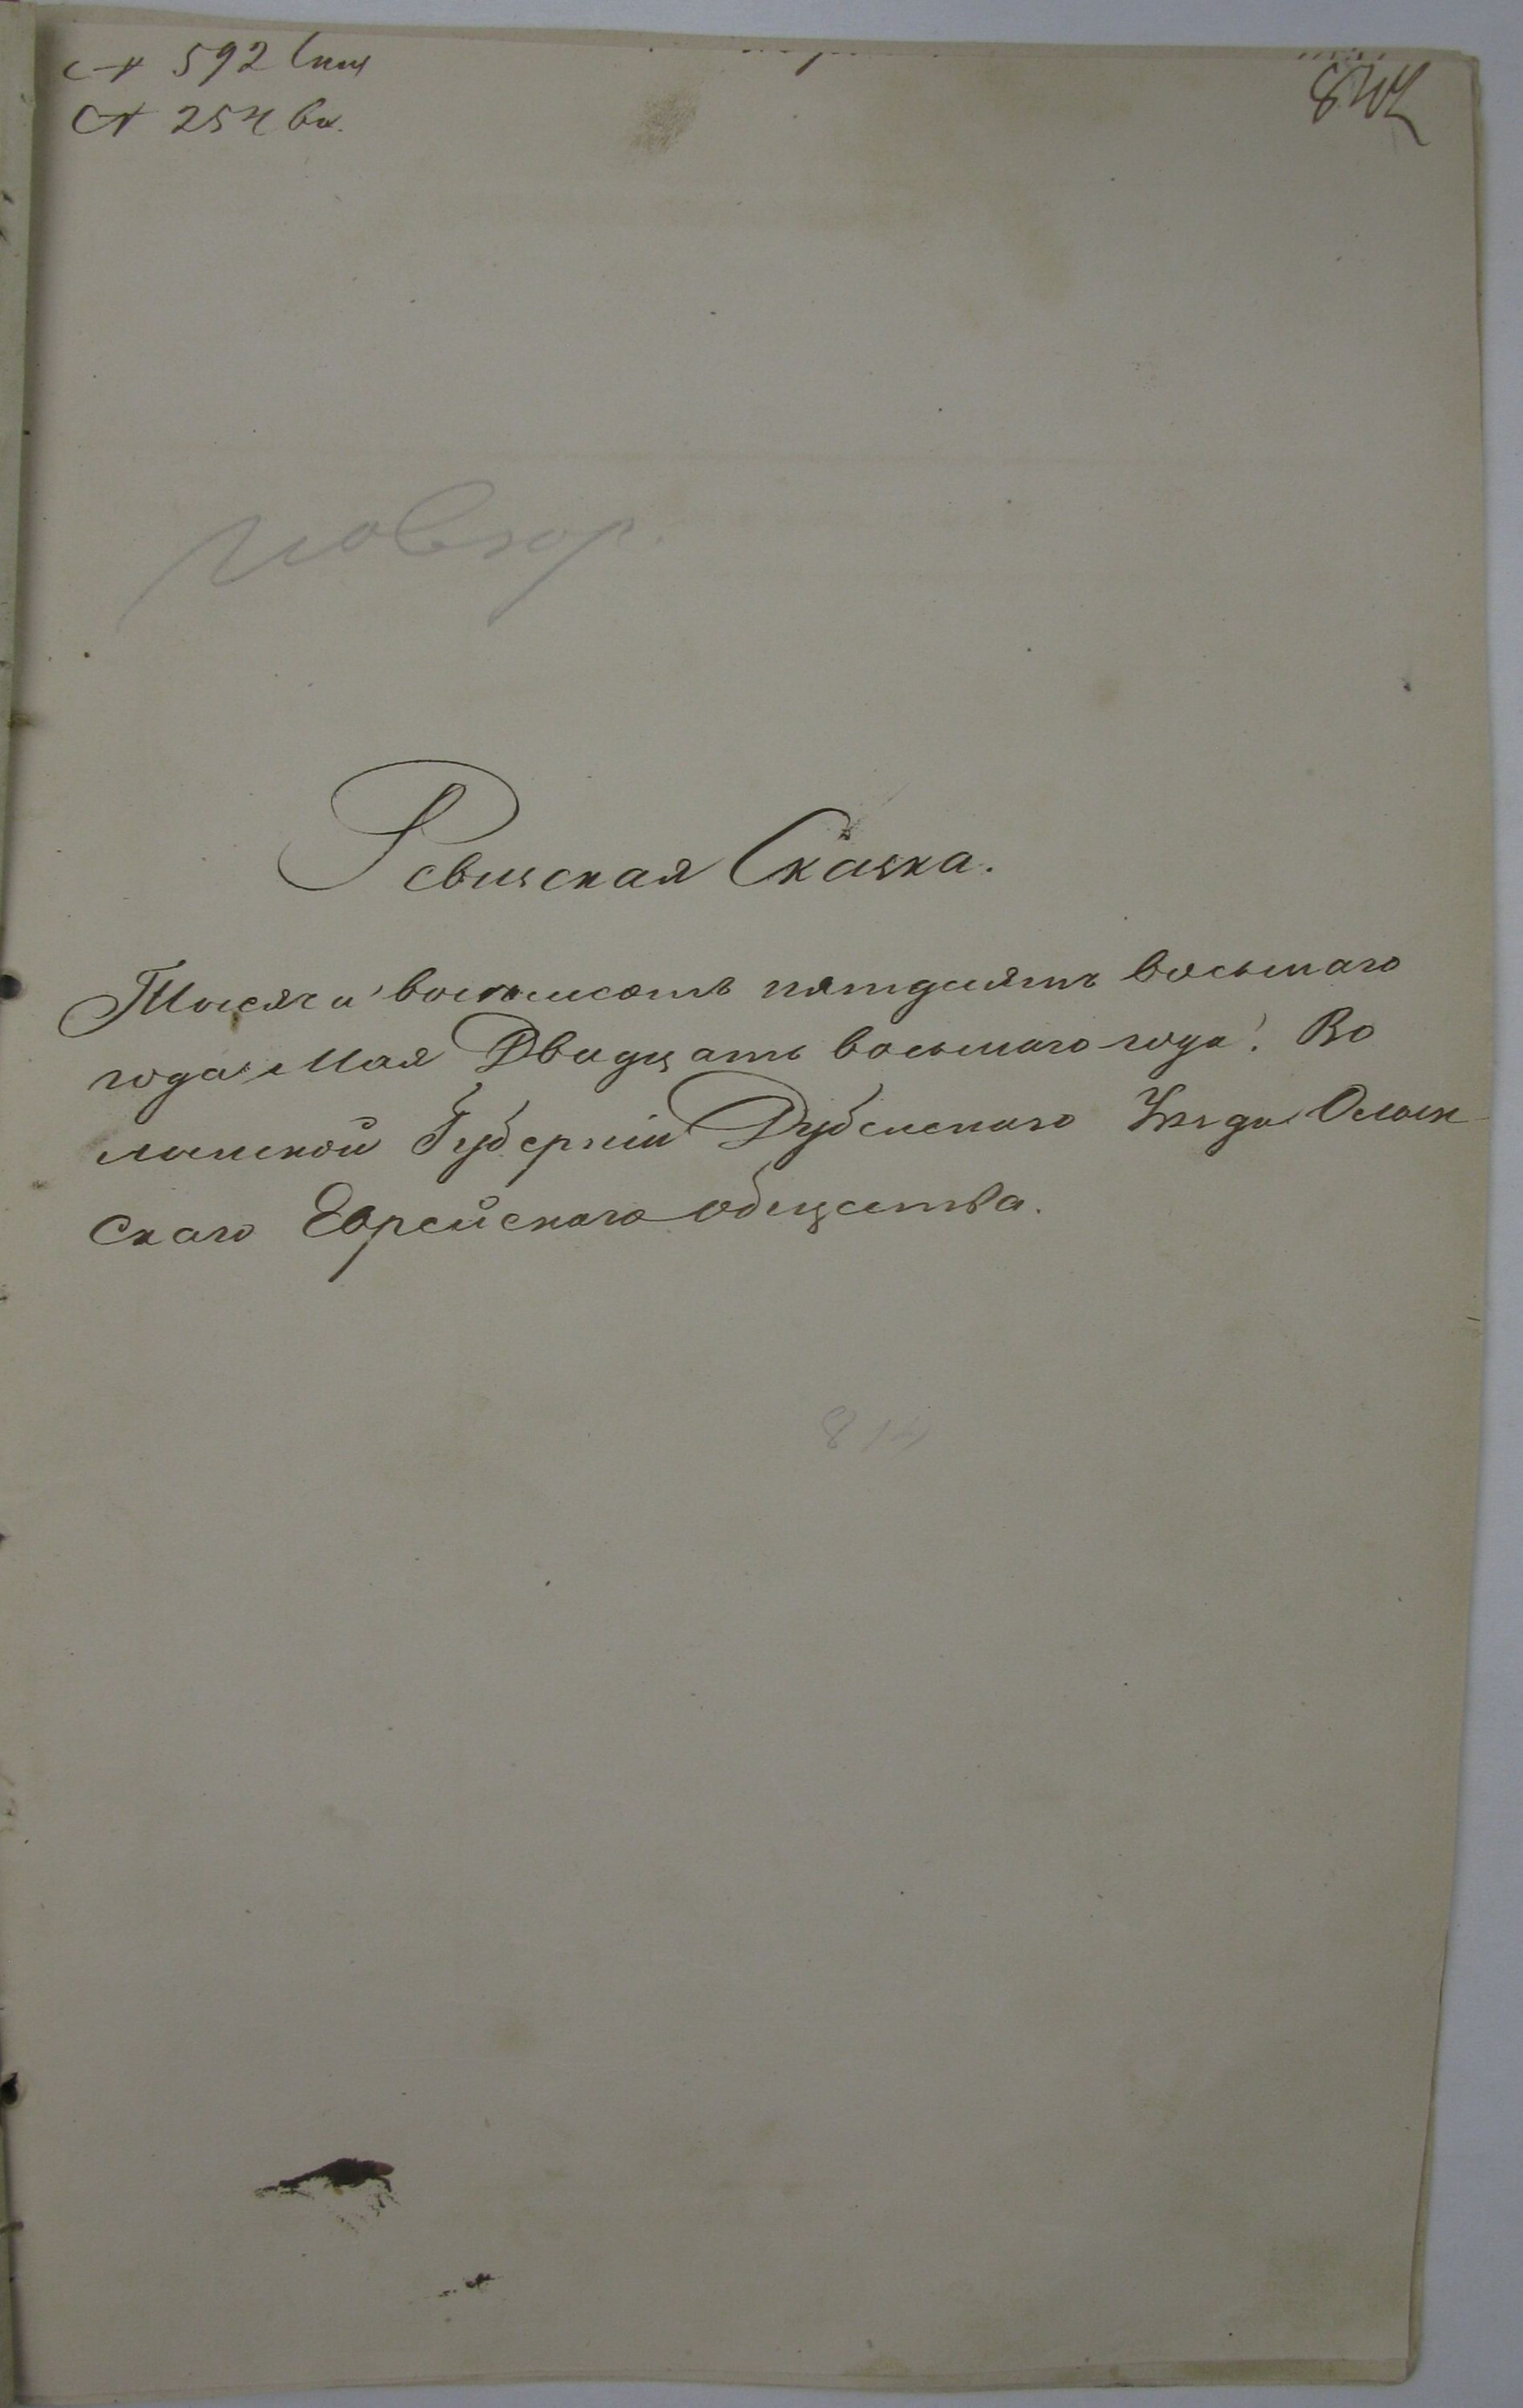 № 592
№ 254
повтор.
Ревизская Сказка.
Тысяча восемьсотъ пятдесятъ восьмаго
года Мая Двадцать восьмаго года. Во
лынской Губерніи Дубенскаго Уѣзда Олык
скаго Еврейскаго общества.